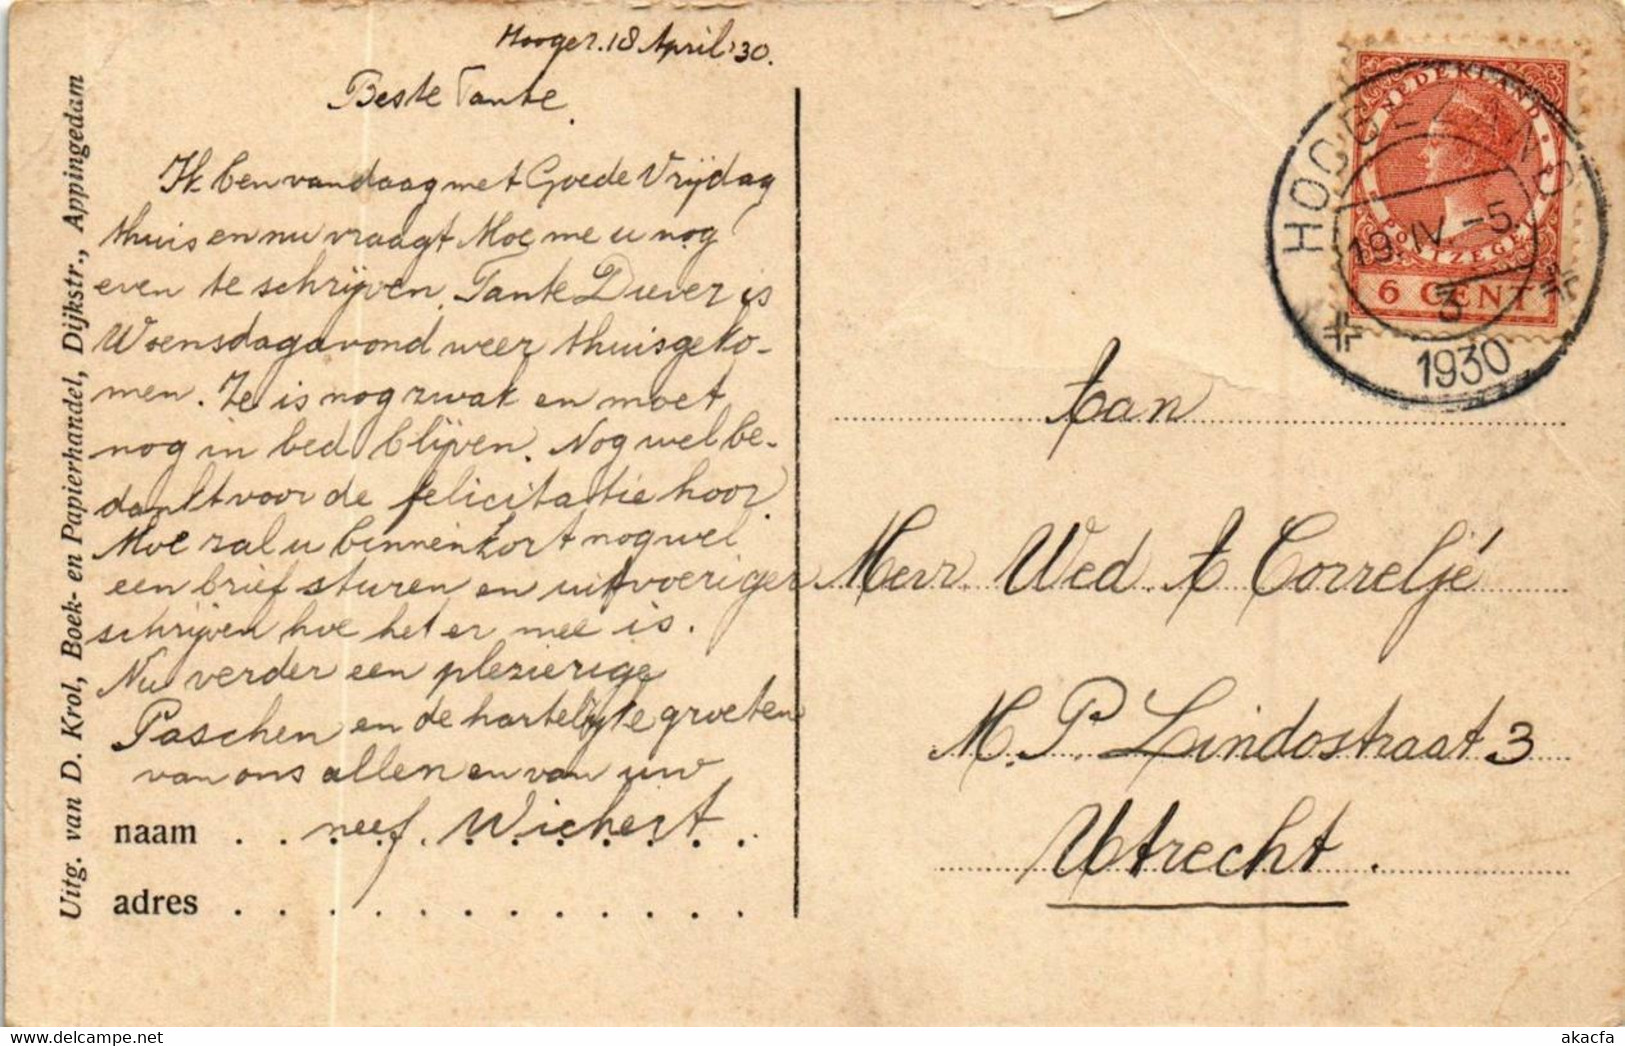 Hooger. 18 April '30.
Beste Tante.
Ik ben vandaag met Goede Vrijdag
thuis en nu vraagt Moe me u nog
even te schrijven. Tante Diever is
Woensdagavond weer thuisgeko-
men. Ze is nog zwak en moet
nog in bed blijven. Nog wel be-
dankt voor de felicitatie hoor.
Moe zal u binnenkort nog wel
een brief sturen en uitvoeriger
schrijven hoe het er mee is.
Nu verder een plezierige
Paschen en de hartelijke groeten
van ons allen en van uw
naam . . neef. Wichert
adres
Uitg. van D. Krol, Boek- en Papierhandel, Dijkstr., Appingedam
NEDERLAND
6 CENT
19.IV.-5.
3
1930
Aan
Mevr Wed A Correljé
M. P. Lindostraat 3
Utrecht.
akacfa